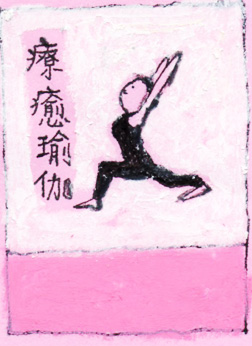 療癒瑜伽